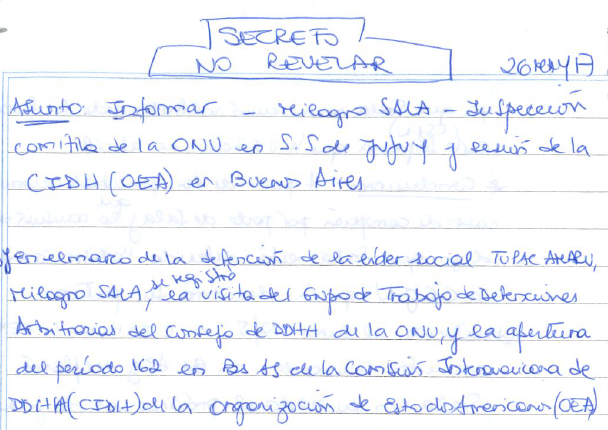 SECRETO
NO REVELAR
26MAY17
Asunto: Informar - Milagro SALA - Inspección
comitiva de la ONU en S. S de Jujuy y sesión de la
CIDH (OEA) en Buenos Aires
en el marco de la detención de la líder social TUPAC AMARU,
Milagro SALA, se registró la visita del Grupo de Trabajo de Detenciones
Arbitrarias del Consejo de DDHH de la ONU, y la apertura
del período 162 en Bs As de la Comisión Interamericana de
DDHH (CIDH) de la Organización de Estados Americanos (OEA)